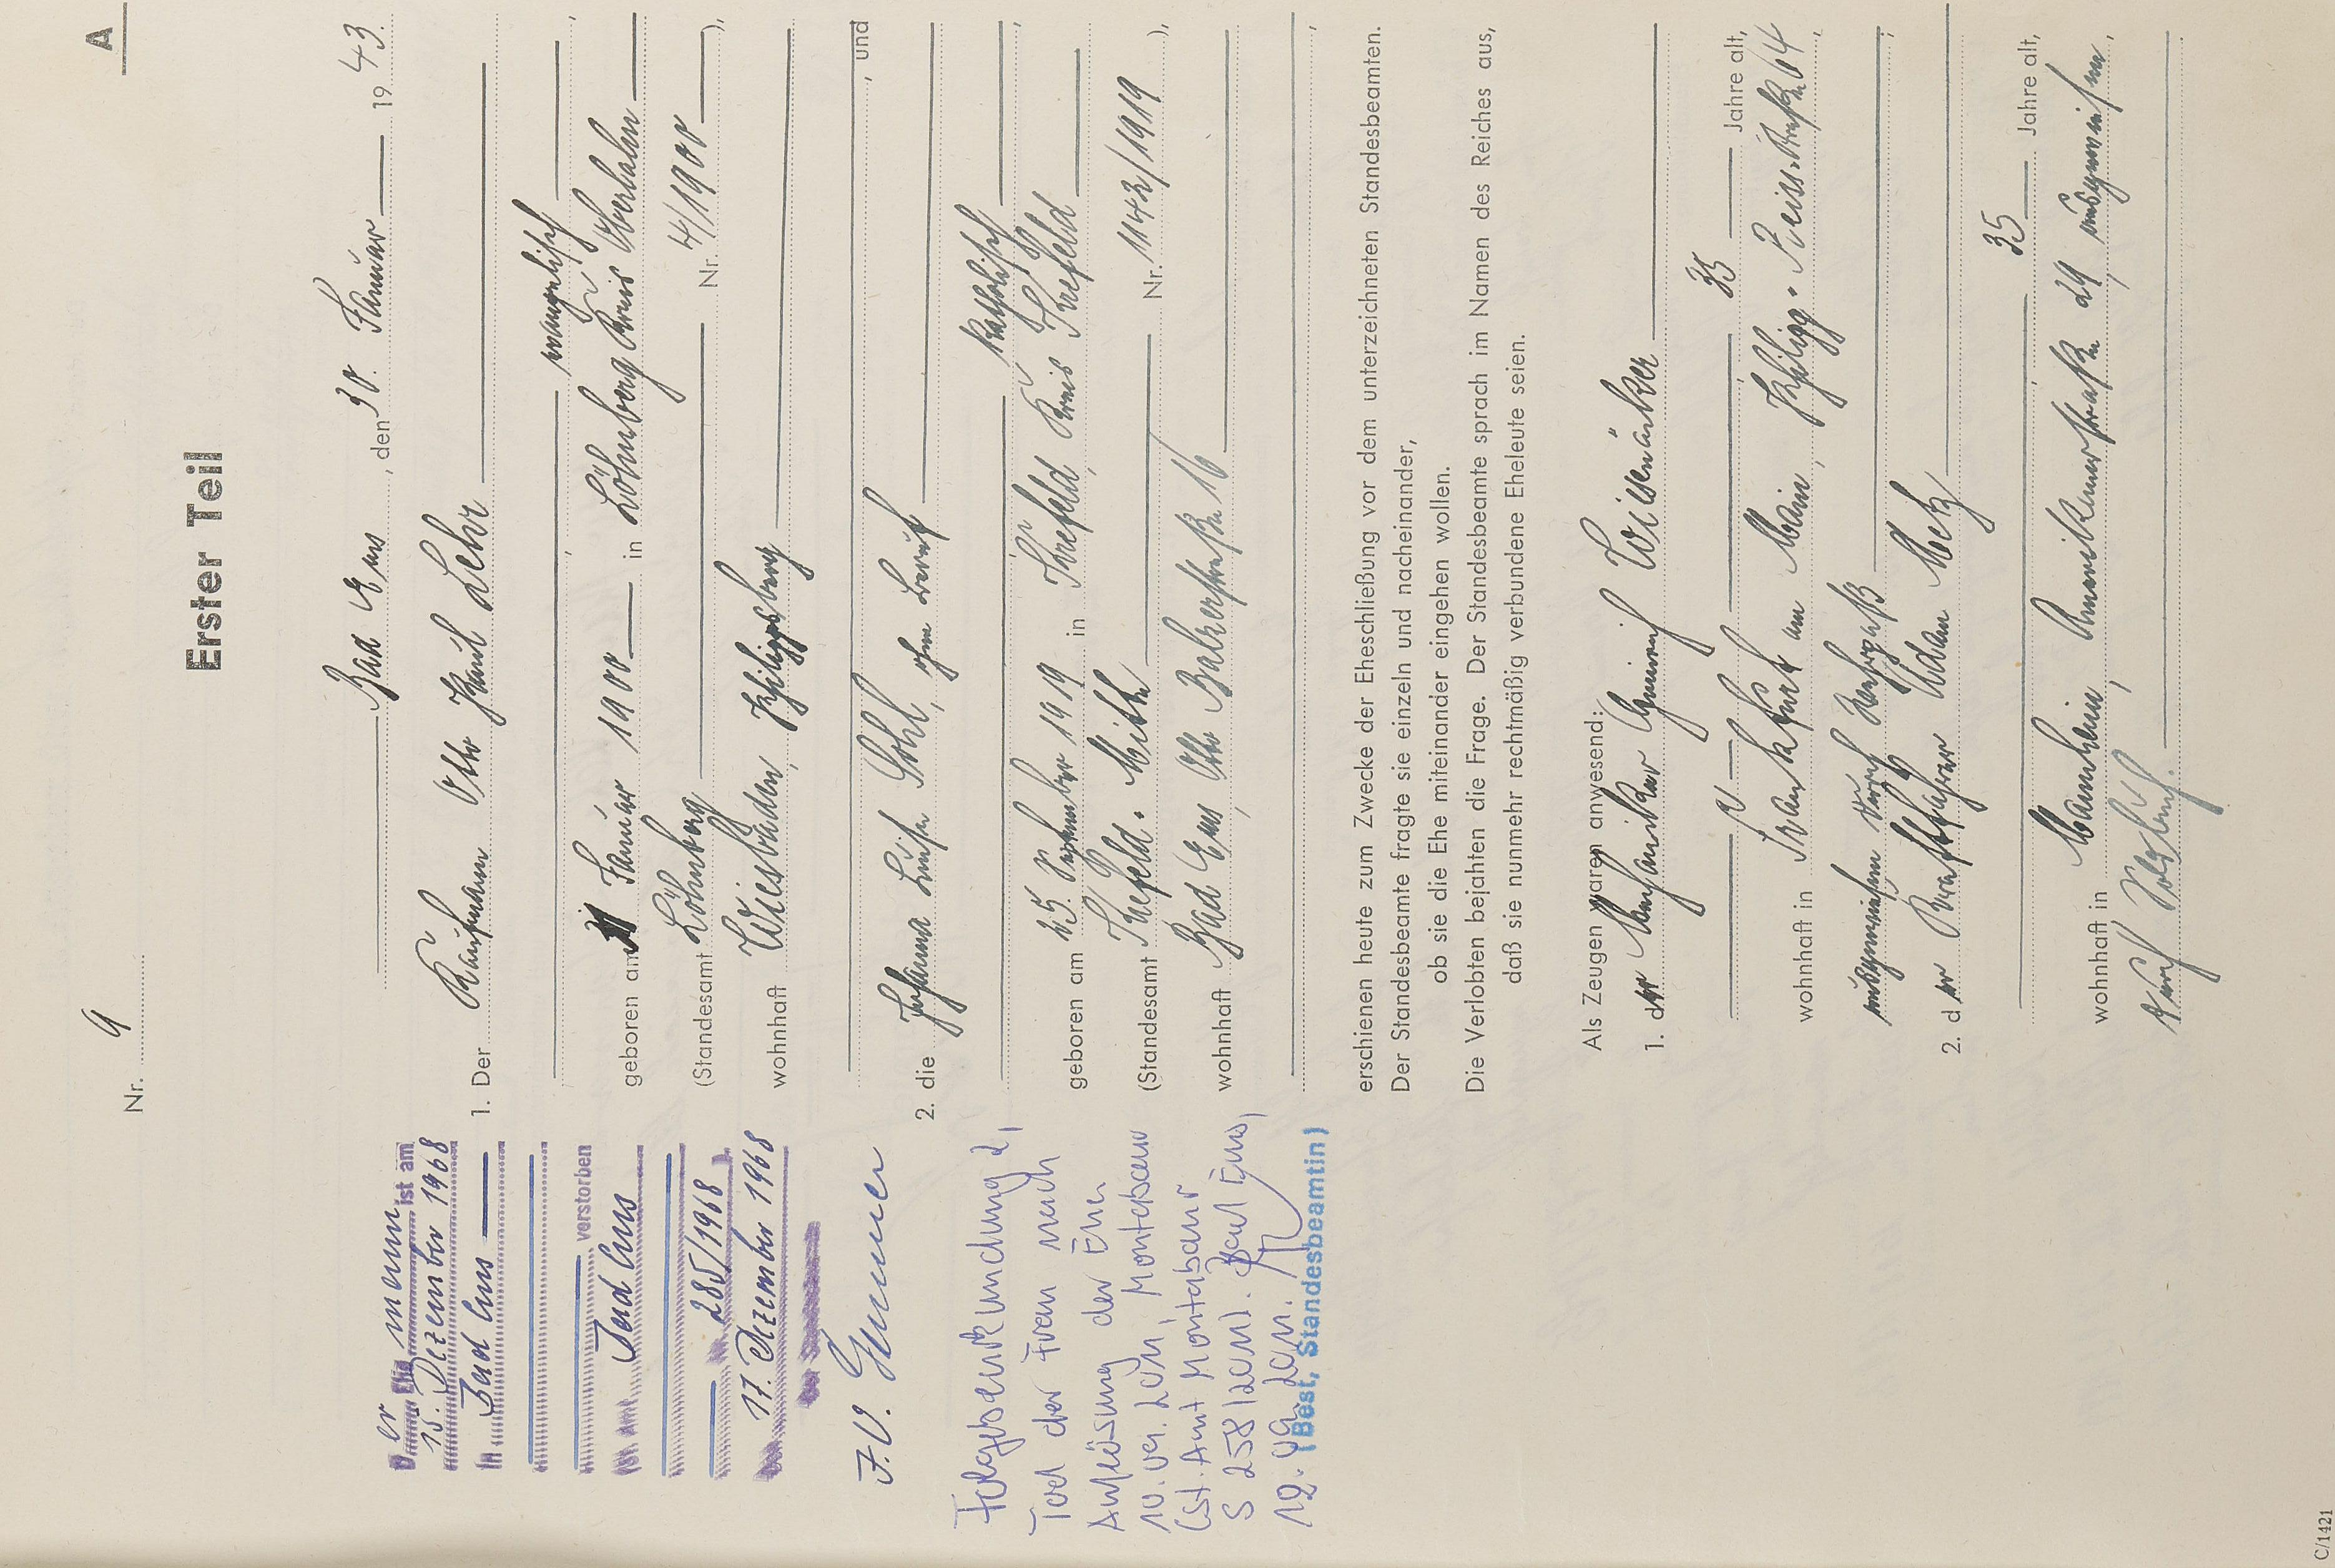 Nr. 9
A
Erster Teil
Bad Ems, den 30. Januar 1943.
1. Der Kaufmann Otto Paul Lehr
evangelisch
geboren am Januar 1900 in Löhnberg Kreis Oberlahn
(Standesamt Löhnberg Nr. 4/1900),
wohnhaft Wiesbaden, Philippsberg
, und
2. die Johanna Luise Sohl, ohne Beruf
katholisch
geboren am 25. September 1919 in Krefeld, Kreis Krefeld
(Standesamt Krefeld-Mitte Nr. 1143/1919),
wohnhaft Bad Ems, Otto Balzerstraße 16
erschienen heute zum Zwecke der Eheschließung vor dem unterzeichneten Standesbeamten.
Der Standesbeamte fragte sie einzeln und nacheinander,
ob sie die Ehe miteinander eingehen wollen.
Die Verlobten bejahten die Frage. Der Standesbeamte sprach im Namen des Reiches aus,
daß sie nunmehr rechtmäßig verbundene Eheleute seien.
Als Zeugen waren anwesend:
1. der Mechaniker Heinrich
35 Jahre alt,
wohnhaft in Frankfurt am Main, Philipp-Reiss-Straße 64
ausgewiesen durch
2. der Kraftfahrer Adam Metz
35 Jahre alt,
wohnhaft in Mannheim, Amerikanerstraße 29, ausgewiesen
durch Soldbuch.
Der Ehemann ist am
15. Dezember 1968
in Bad Ems
verstorben
Bad Ems
285/1968
17. Dezember 1968
J.V.
Folgebeurkundung 2,
Tod der Frau nach
Auflösung der Ehe
10.09.2011, Montabaur
(St.Amt Montabaur
S 258/2011). Bad Ems,
12.09.2011.
(Best, Standesbeamtin)
C/1421